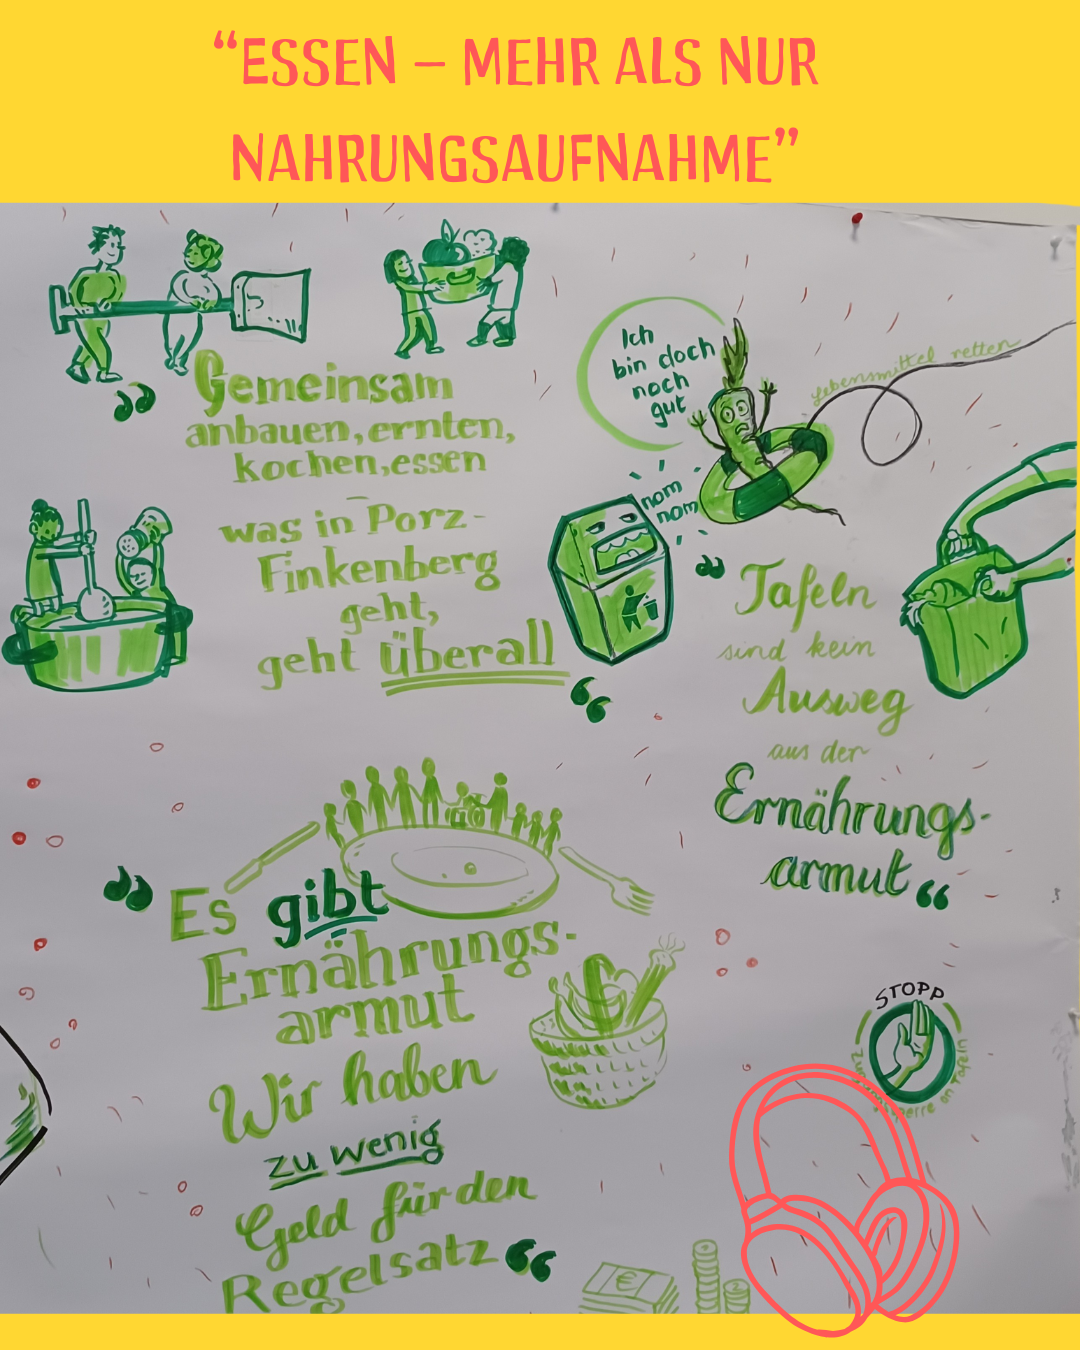 “ESSEN – MEHR ALS NUR
NAHRUNGSAUFNAHME”
„Gemeinsam
anbauen, ernten,
kochen, essen
was in Porz-
Finkenberg
geht,
geht überall“
Ich
bin doch
noch
gut
Lebensmittel retten
nom
nom
„Tafeln
sind kein
Ausweg
aus der
Ernährungs-
armut“
„Es gibt
Ernährungs-
armut
Wir haben
zu wenig
Geld für den
Regelsatz“
STOPP
an Tafeln
€
2